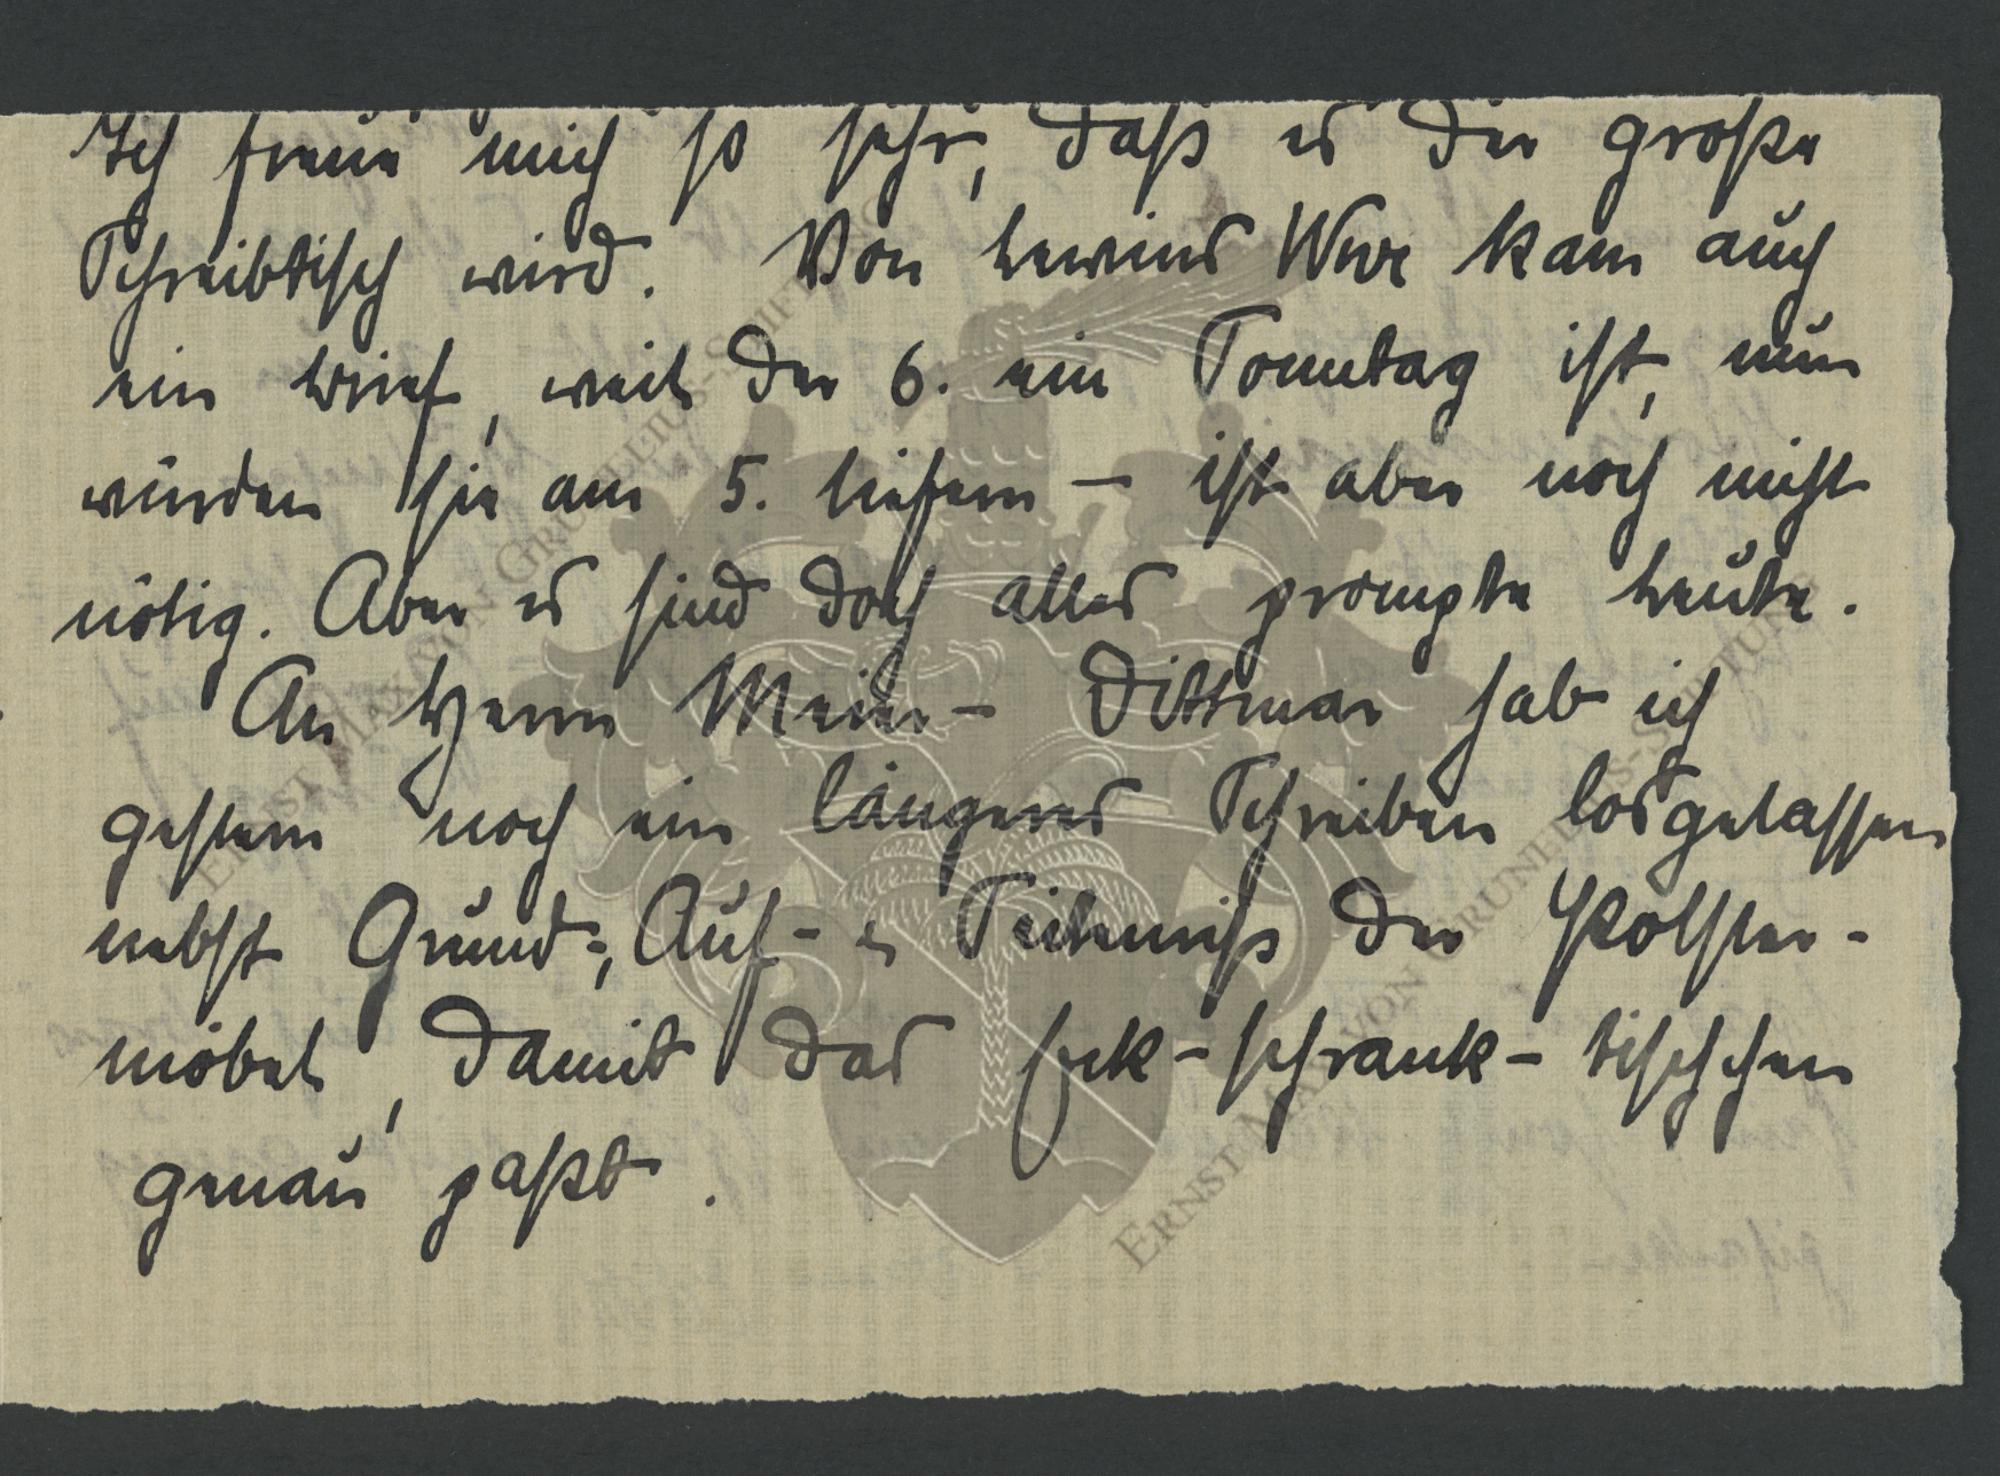 Ich freue mich so sehr, daß es der große
Schreibtisch wird. Von kam auch
ein Brief, weil der 6. ein Sonntag ist, nun
würden sie am 5. liefern – ist aber noch nicht
nötig. Aber es sind doch alles prompte Leute.
An Herrn Meier- Dittmar hab ich
gestern noch ein längeres Schreiben losgelassen
nebst Grund-, Auf- u Seitenriß der Polster-
möbel, damit das Eck-schrank-tischchen
genau paßt.
ERNST MAX VON GRUNELIUS-STIFTUNG
ERNST MAX VON GRUNELIUS-STIFTUNG